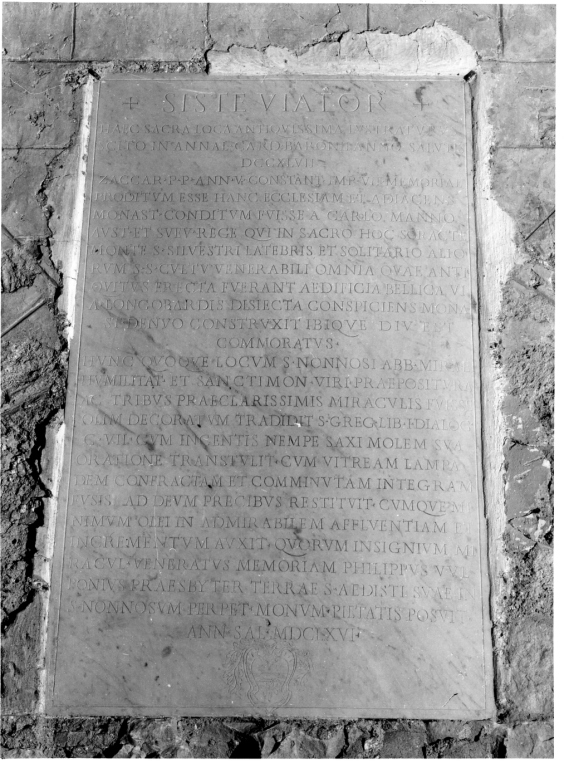 + SISTE VIATOR +
HAEC SACRA LOCA ANTIQVISSIMA
IN ANNAL CARD BARON SALVT
DCCXLVII
ZACCAR·P·P·ANN·V·CONSTANT·IMP·VI·MEMORIAE
PRODITVM ESSE HANC ECCLESIAM ET ADIACENS
MONAST·CONDITVM FVISSE A CARLO MANNO
REGE QVI IN SACRO HOC SORACTIS
MONTE S·SILVESTRI LATEBRIS ET SOLITARIO
S·S·CVLTV VENERABILI OMNIA QVAE ANTI
QVITVS ERECTA FVERANT AEDIFICIA BELLICA VI
A LONGOBARDIS DISIECTA CONSPICIENS MONA
DENVO CONSTRVXIT IBIQVE DIV EST
COMMORATVS·
HVNC QVOQVE LOCVM S·NONNOSI ABB·
HVMILITAT·ET SANCTIMON·VIRI PRAEPOSIT
TRIBVS PRAECLARISSIMIS MIRACVLIS
DECORATVM TRADIDIT S·GREG·LIB·I·DIAL
C·VII·CVM INGENTIS NEMPE SAXI MOLEM SVA
ORATIONE TRANSTVLIT·CVM VITREAM LAMPA
DEM CONFRACTAM ET COMMINVTAM INTEGRAM
FVSIS AD DEVM PRECIBVS RESTITVIT·CVMQVE MI
NIMVM OLEI IN ADMIRABILEM AFFLVENTIAM
INCREMENTVM AVXIT·QVORVM INSIGNIVM MI
RACVL·VENERATVS MEMORIAM PHILIPPVS VVL
PONIVS PRAESBYTER TERRAE S·AEDISTI
S·NONNOSVM PERPET·MONVM·PIETATIS POSVIT
ANN·SAL·MDCLXVI